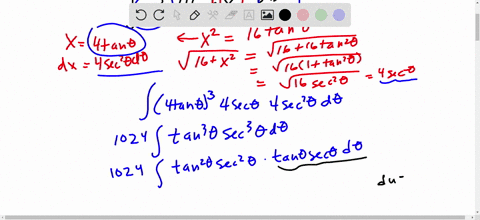 x = 4tanθ ← x² = 16 tan²θ
dx = 4sec²θdθ √16+x² = √16+16tan²θ
= √16(1+tan²θ)
= √16 sec²θ = 4secθ
∫(4tanθ)³ 4secθ 4sec²θ dθ
1024 ∫ tan³θ sec³θ dθ
1024 ∫ tan²θ sec²θ · tanθ secθ dθ
du =